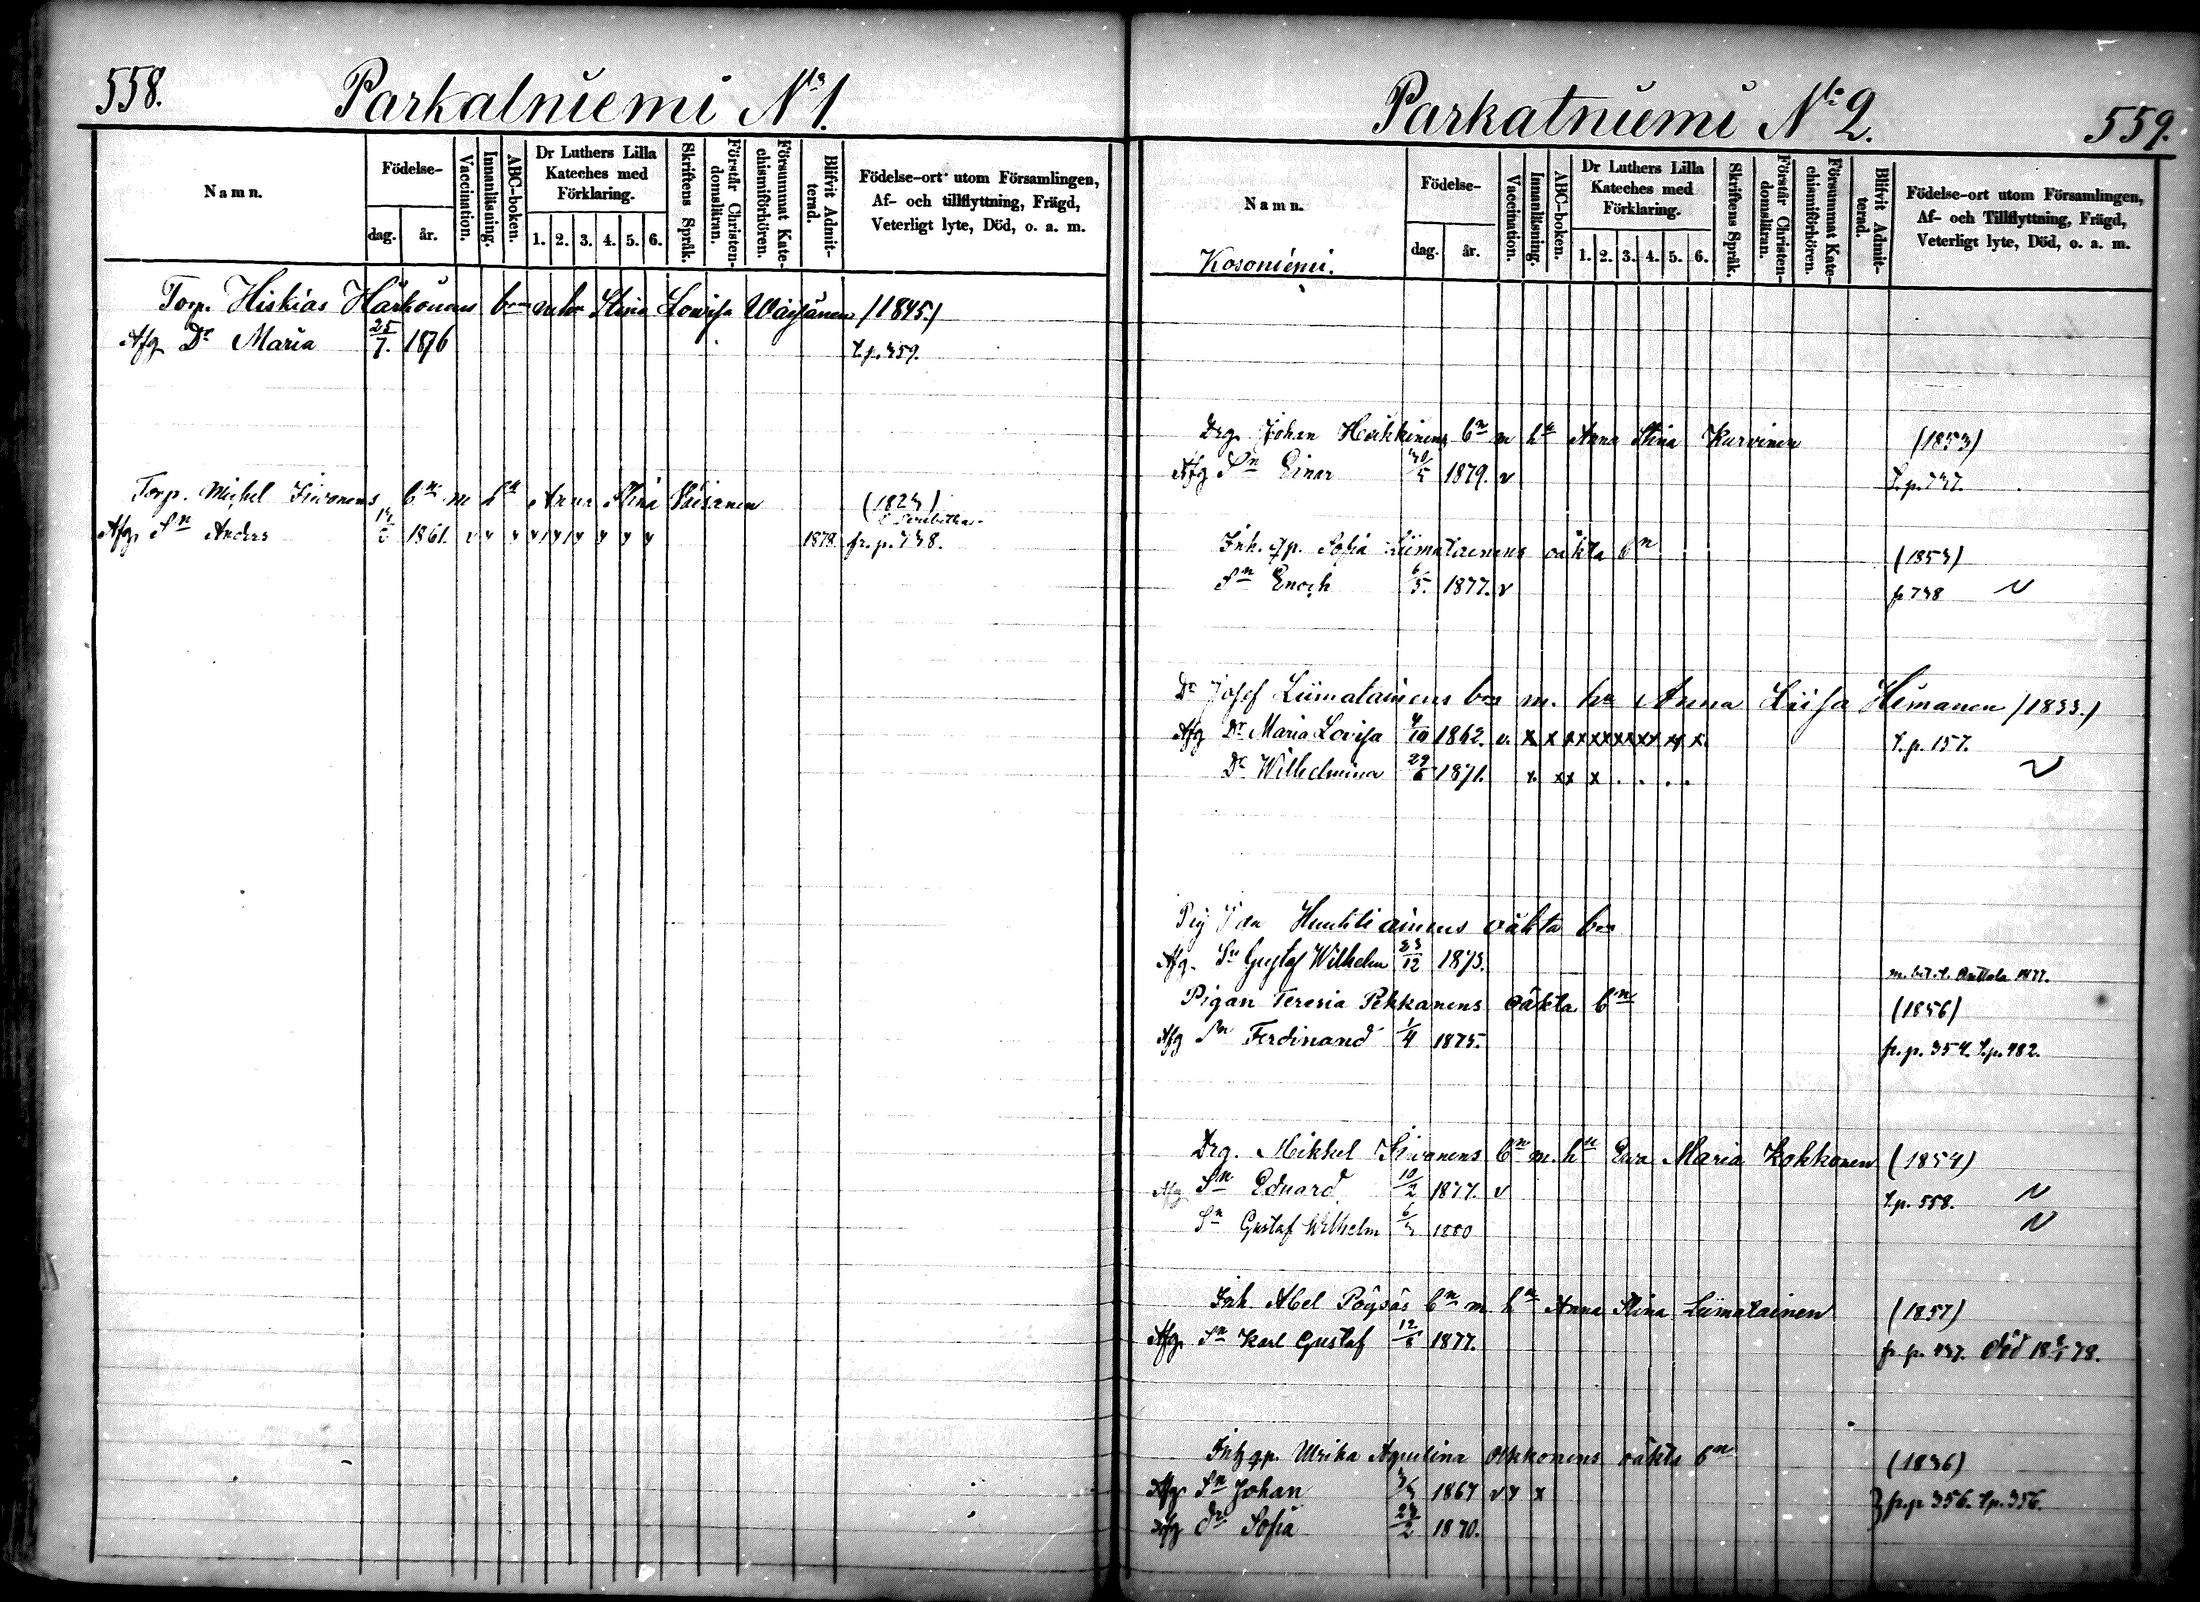 558.
Parkatniemi No 1.
Namn.
Födelse-
dag.
år.
Vaccination.
Innanläsning.
ABC-boken.
Dr Luthers Lilla Kateches med Förklaring.
1. 2. 3. 4. 5. 6.
Skriftens Språk.
Förstår Christendomsläran.
Försummat Katechismiförhören.
Blifvit Admitterad.
Födelse-ort utom Församlingen,
Af- och tillflyttning, Frägd,
Veterligt lyte, Död, o. a. m.
Torp. Hiskias Härkönens bn m hn Stina Lovisa Wäisänen (1845.)
Afg. Dr Maria 25/7. 1876 T.p.359.
Torp. Michel Siivonens bn m hn Anna Stina Väisänen (1823)
Afg. Sn Anders 1861. v v v v v v v v v 1878. fr.p.738.
Parkatniemi No 2.
559.
Namn.
Födelse-
dag.
år.
Vaccination.
Innanläsning.
ABC-boken.
Dr Luthers Lilla Kateches med Förklaring.
1. 2. 3. 4. 5. 6.
Skriftens Språk.
Förstår Christendomsläran.
Försummat Katechismiförhören.
Blifvit Admitterad.
Födelse-ort utom Församlingen,
Af- och Tillflyttning, Frägd,
Veterligt lyte, Död, o. a. m.
Kosoniemi.
Drg. Johan Heikkinens bn m hn Anna Stina Kurvinen (1853)
Afg Sn Einar 30/5 1879. v T.p.737.
Inh. gp. Sofia Liimatainens oäkta bn (1853)
Sn Enoch 6/5. 1877. v fr 738
Dr Josef Liimatainens bn m. hn Anna Liisa Himanen (1833.)
Afg Dr Maria Lovisa 4/10 1862. v. x x x x x x x x x x T.p. 157.
Dr Wilhelmina 29/6 1871. x. x x x . . . .
Pig Ida Hinttiainens oäkta bn
Afg. Sn Gustaf Wilhelm 23/12 1873. m. bet. t. Anttola 1877.
Pigan Teresia Pekkanens oäkta bn (1856)
Afg Sn Ferdinand 1/4 1875. fr. p. 354. T.p. 482.
Drg. Mikkel Siivonens bn m. hn Eva Maria Kokkonen (1854)
Afg Sn Eduard 10/2 1877. v T.p. 558.
Sn Gustaf Wilhelm 1880
Inh. Abel Pöysäs bn m hn Anna Stina Liimatainen (1857)
Afg. Sn Karl Gustaf 12/8 1877. fr p. 437. död 18 8/1 78.
Inh gp. Ulrika Aqvilina Okkonens oäkta bn (1836)
Afg. Sn Johan 1867 v v x fr.p 356. T.p. 356.
Afg dr Sofia 27/2 1870.